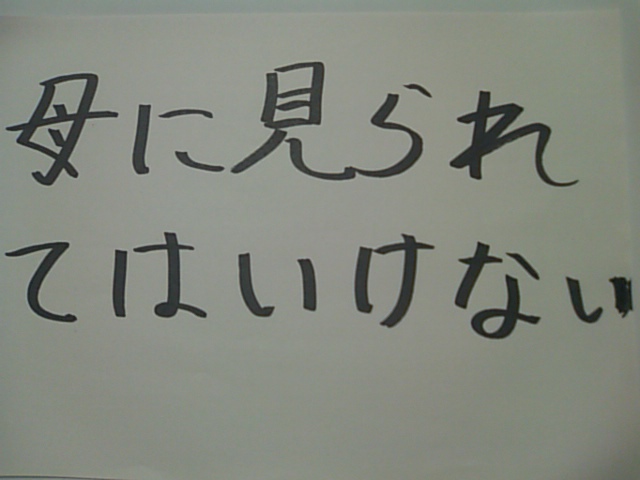 母に見られ
てはいけない